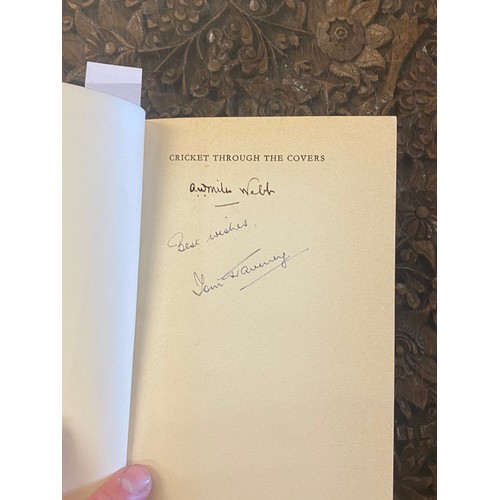 CRICKET THROUGH THE COVERS
Miles Webb
Best wishes,
Tom Graveney